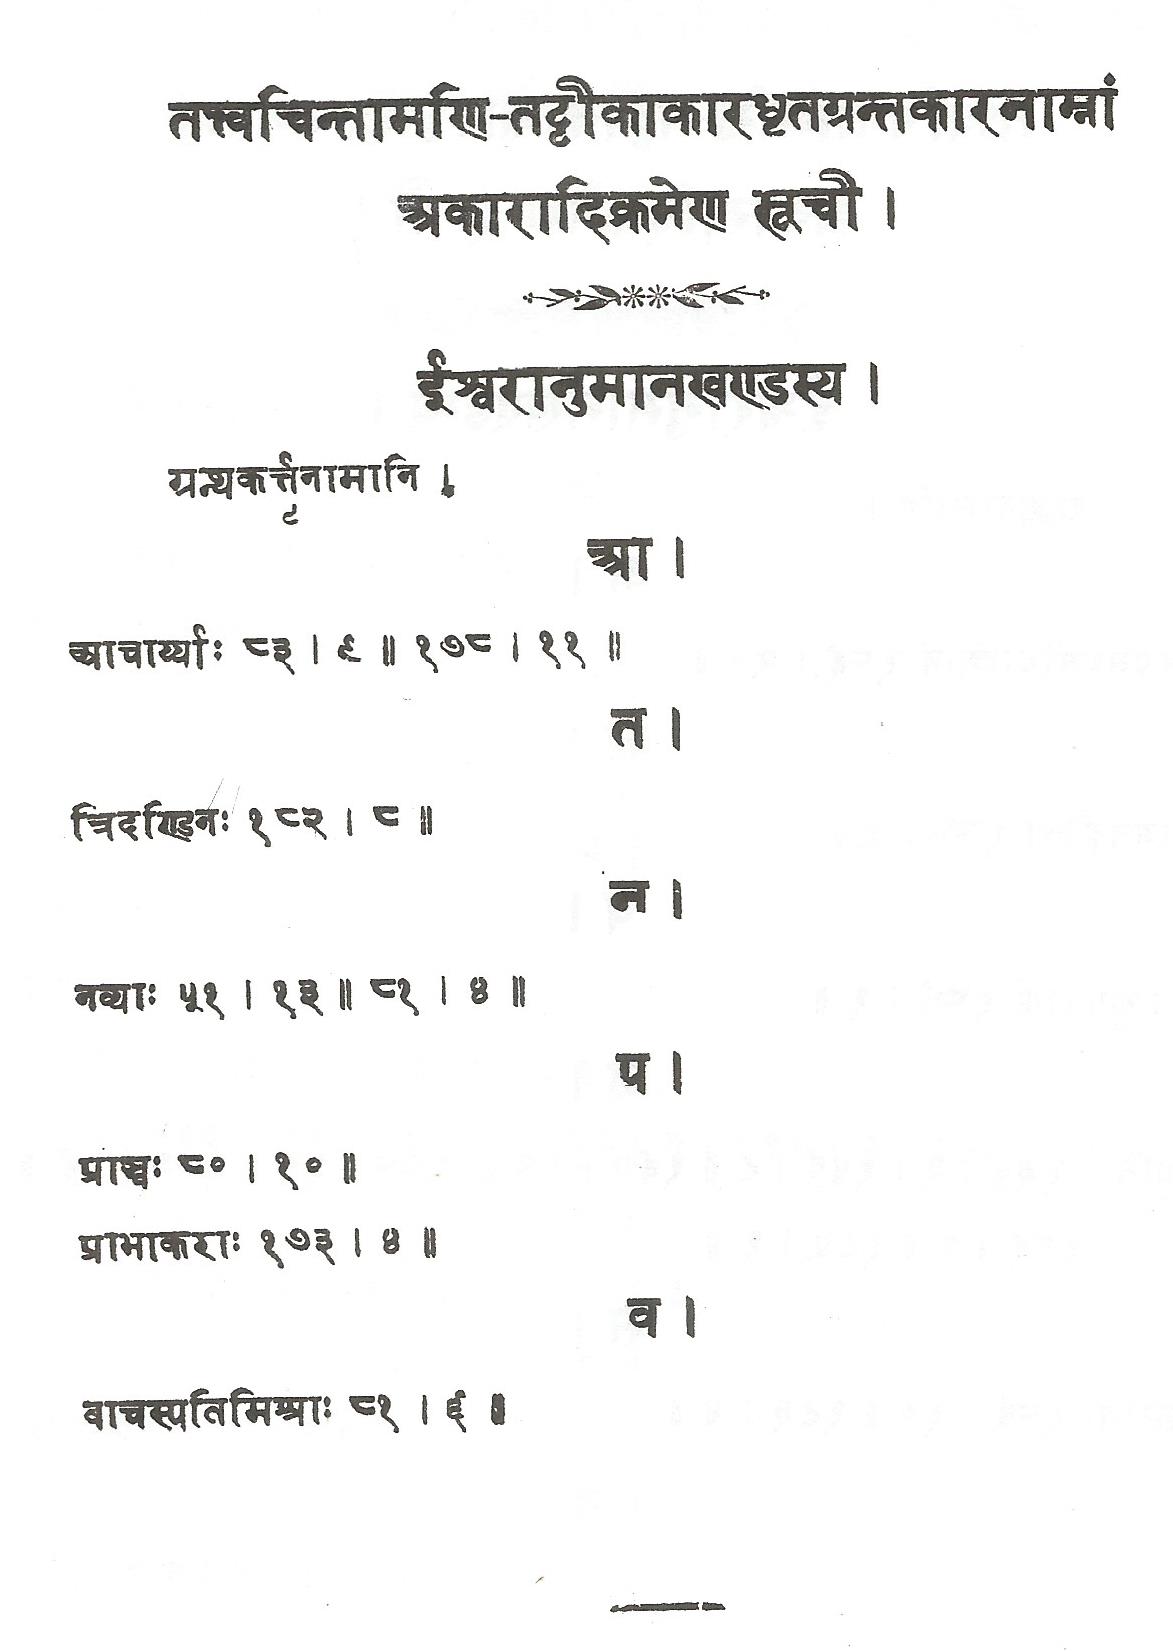 तत्त्वचिन्तामणि-तट्टीकाकारधृतग्रन्तकारनाम्नां
अकारादिक्रमेण सूची ।
ईश्वरानुमानखण्डस्य ।
ग्रन्थकर्त्तृनामानि ।
आ ।
आचार्य्याः ८३ । ९ ॥ १७८ । ११ ॥
त ।
त्रिदण्डिनः १८२ । ८ ॥
न ।
नव्याः ५१ । १३ ॥ ८१ । ४ ॥
प ।
प्राञ्चः ८० । १० ॥
प्राभाकराः १७३ । ४ ॥
व ।
वाचस्पतिमिश्राः ८१ । ६ ॥